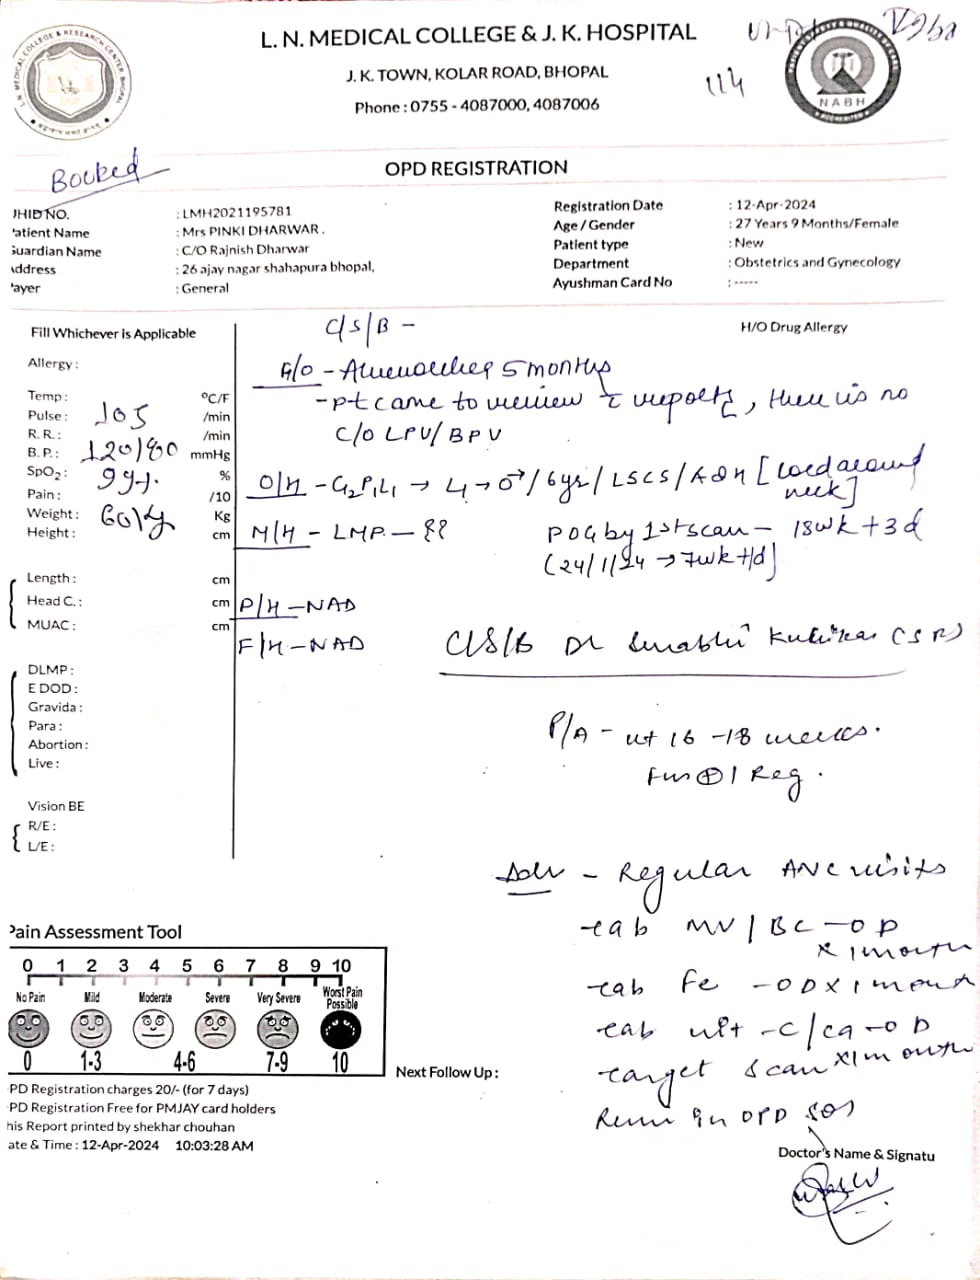 L. N. MEDICAL COLLEGE & J. K. HOSPITAL
J. K. TOWN, KOLAR ROAD, BHOPAL
Phone : 0755 - 4087000, 4087006
114
NABH
OPD REGISTRATION
Booked
JHID NO. : LMH2021195781
'atient Name : Mrs PINKI DHARWAR .
Guardian Name : C/O Rajnish Dharwar
Address : 26 ajay nagar shahapura bhopal,
'ayer : General
Registration Date : 12-Apr-2024
Age / Gender : 27 Years 9 Months/Female
Patient type : New
Department : Obstetrics and Gynecology
Ayushman Card No : -----
Fill Whichever is Applicable
H/O Drug Allergy
Allergy :
Temp : °C/F
Pulse : 105 /min
R. R. : /min
B. P. : 120/80 mmHg
SpO2 : 99%. %
Pain : /10
Weight : 60kg Kg
Height : cm
Length : cm
Head C. : cm
MUAC : cm
DLMP :
E DOD :
Gravida :
Para :
Abortion :
Live :
Vision BE
R/E :
L/E :
C/S/B -
- Amenorrhea 5 months
- pt came to review c reports, there is no
C/O LPV/BPV
O/H - G2P1L1 → L1 → ♂/6yr/LSCS/A&H [cord around
neck]
M/H - LMP - ??
POG by 1st scan - 18wk + 3d
(24/1/24 → 7wk+1d]
P/H - NAD
F/H - NAD
C/S/B Dr (SR)
P/A - ut 16 - 18 weeks.
FHS ⊕ / Reg.
Adv - Regular ANC visits
- tab MV/BC - OD
x 1 month
- tab Fe - OD x 1 month
- tab - C/ca - OD
x 1 month
- target scan
Review in OPD SOS
Pain Assessment Tool
0 1 2 3 4 5 6 7 8 9 10
No Pain Mild Moderate Severe Very Severe Worst Pain Possible
0 1-3 4-6 7-9 10
Next Follow Up :
PD Registration charges 20/- (for 7 days)
PD Registration Free for PMJAY card holders
his Report printed by shekhar chouhan
ate & Time : 12-Apr-2024 10:03:28 AM
Doctor's Name & Signatu